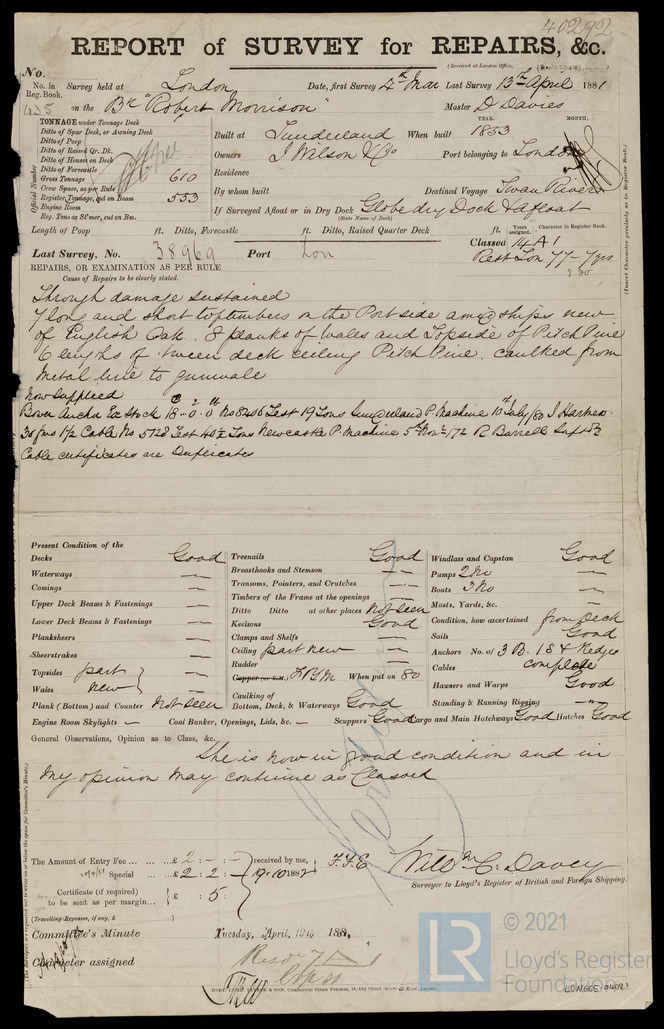 40292
REPORT of SURVEY for REPAIRS, &c.
(Received at London Office,
No.
No. in Reg. Book. Survey held at London Date, first Survey 4th Mar Last Survey 13th April 1881
435 on the Bk "Robert Morrison" Master D Davies
TONNAGE under Tonnage Deck
Ditto of Spar Deck, or Awning Deck
Ditto of Poop
Ditto of Raised Qr. Dk.
Ditto of Houses on Deck
Ditto of Forecastle
Gross Tonnage 610
Crew Space, as per Rule
Register Tonnage, cut on Beam 553
Engine Room
Reg. Tons as St'mer, cut on Bm.
Official Number
YEAR. MONTH.
Built at Sunderland When built 1853
Owners J Wilson & Co Port belonging to London
Residence
By whom built Destined Voyage Swan River
If Surveyed Afloat or in Dry Dock Globe dry Dock & afloat
(State Name of Dock)
(Insert Character precisely as in Register Book.)
Length of Poop ft. Ditto, Forecastle ft. Ditto, Raised Quarter Deck ft.
Years assigned. Character in Register Book.
Classed 14 A 1
Last Survey, No. 38969 Port Lon
Rest Lon 77 - 7 yrs
2.80
REPAIRS, OR EXAMINATION AS PER RULE
Cause of Repairs to be clearly stated.
Through damage sustained
7 long and short toptimbers on the Port side amidships new
of English Oak. 8 planks of Wales and Topside of Pitch Pine
6 lengths of tween deck ceiling Pitch Pine. caulked from
metal line to gunwale
Now Supplied
Bower Anchor Ex Stock 18-0-0 Test 19 Tons Sunderland P. Machine 10th July/80 J Hartnes
30 fms 1 1/2 Cable No 5728 Test 40 1/2 Tons Newcastle P. Machine 5th Novr/72 R Barrell Supt
Cable certificates are Duplicates
Present Condition of the
Decks Good
Waterways —
Comings —
Upper Deck Beams & Fastenings —
Lower Deck Beams & Fastenings —
Planksheers —
Sheerstrakes —
Topsides part
Wales new
Plank (Bottom) and Counter Not seen
Engine Room Skylights — Coal Bunker, Openings, Lids, &c. —
Treenails Good
Breasthooks and Stemson —
Transoms, Pointers, and Crutches —
Timbers of the Frame at the openings —
Ditto Ditto at other places Not seen
Keelsons Good
Clamps and Shelfs —
Ceiling part new —
Rudder —
Copper (or Y.M.) F Y M When put on 80
Caulking of
Bottom, Deck, & Waterways Good
Scuppers Good Cargo and Main Hatchways Good Hatches Good
Windlass and Capstan Good
Pumps 2 No —
Boats 3 No —
Masts, Yards, &c. —
Condition, how ascertained from deck
Sails Good
Anchors No. of 3 B. 1 S & Kedge
Cables complete
Hawsers and Warps Good
Standing & Running Rigging —
General Observations, Opinion as to Class, &c.
She is now in good condition and in
my opinion may continue as Classed
The Amount of Entry Fee ... ... £ 2 : - : -
Special ... £ 2 : 2 : -
received by me,
Certificate (if required) to be sent as per margin... £ : 5 :
(Travelling Expenses, if any, £
Willm C. Davey
Surveyor to Lloyd's Register of British and Foreign Shipping.
Committee's Minute Tuesday, April, 19th 1881
Character assigned
© 2021
LR
Lloyd's Register
Foundation
LDN665-0402R1